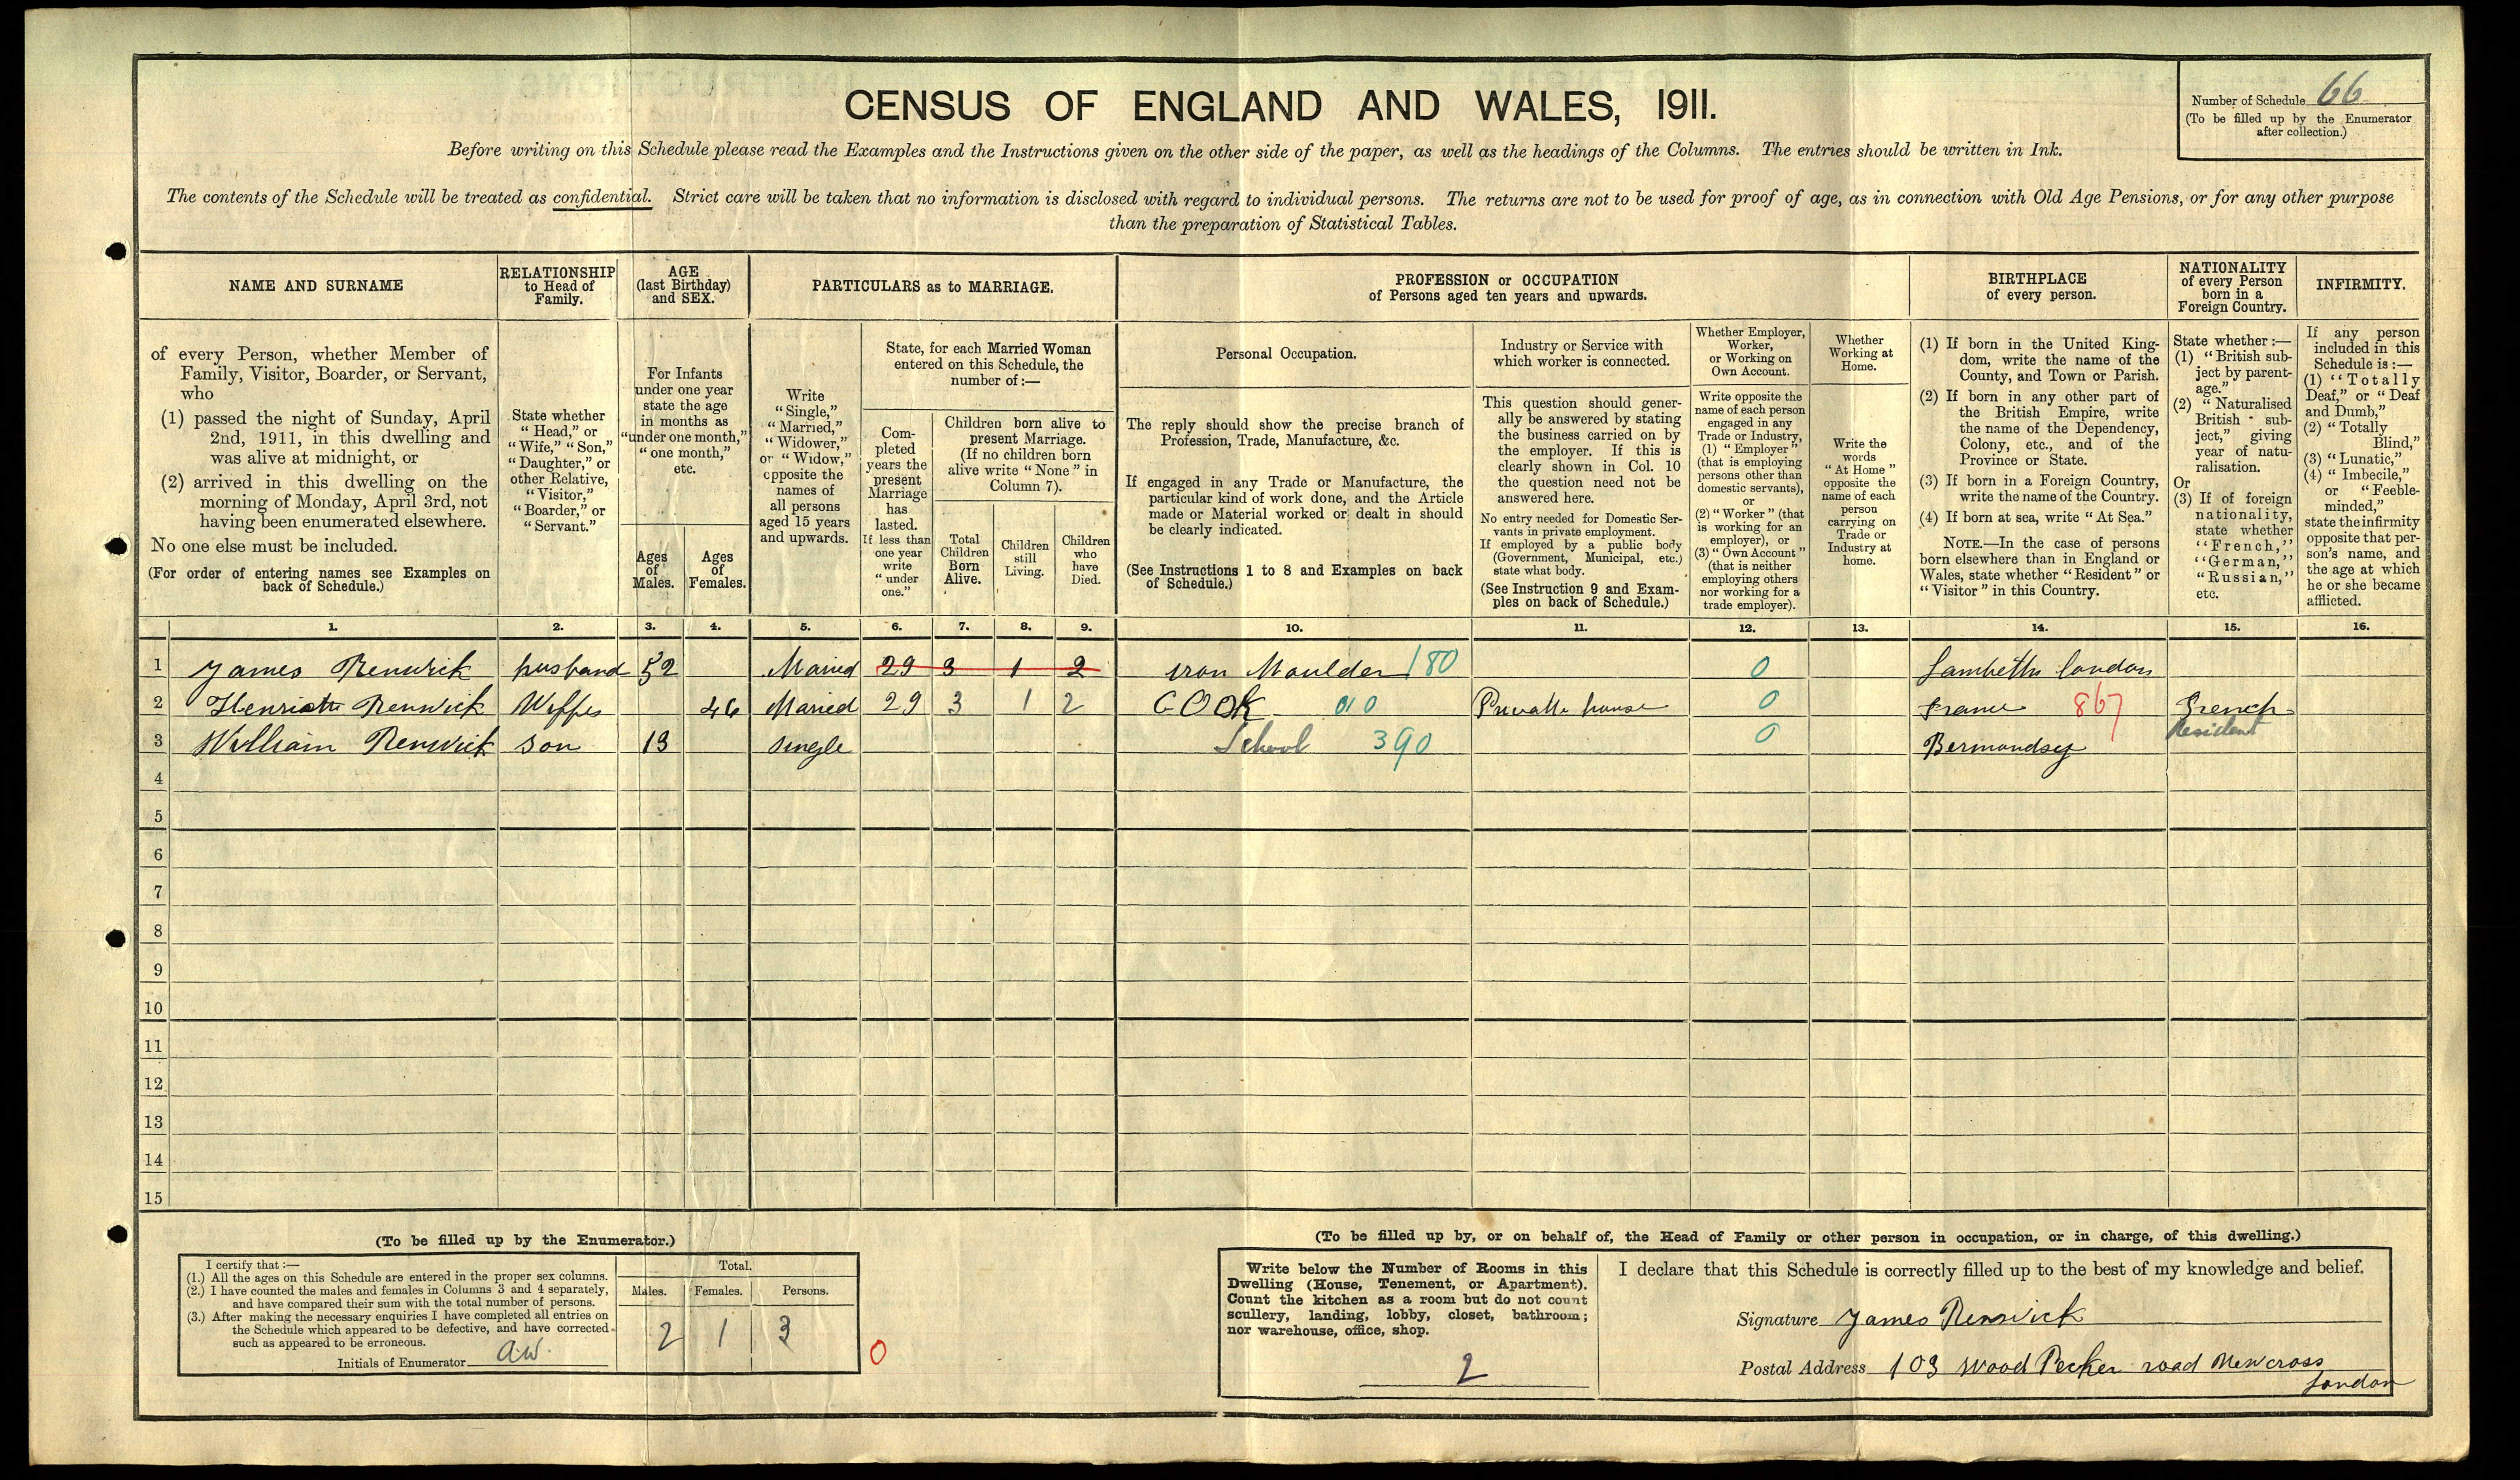 CENSUS OF ENGLAND AND WALES, 1911.
Number of Schedule 66
(To be filled up by the Enumerator
after collection.)
Before writing on this Schedule please read the Examples and the Instructions given on the other side of the paper, as well as the headings of the Columns. The entries should be written in Ink.
The contents of the Schedule will be treated as confidential. Strict care will be taken that no information is disclosed with regard to individual persons. The returns are not to be used for proof of age, as in connection with Old Age Pensions, or for any other purpose
than the preparation of Statistical Tables.
NAME AND SURNAME
of every Person, whether Member of
Family, Visitor, Boarder, or Servant,
who
(1) passed the night of Sunday, April
2nd, 1911, in this dwelling and
was alive at midnight, or
(2) arrived in this dwelling on the
morning of Monday, April 3rd, not
having been enumerated elsewhere.
No one else must be included.
(For order of entering names see Examples on
back of Schedule.)
RELATIONSHIP
to Head of
Family.
State whether
"Head," or
"Wife," "Son,"
"Daughter," or
other Relative,
"Visitor,"
"Boarder," or
"Servant."
AGE
(last Birthday)
and SEX.
For Infants
under one year
state the age
in months as
"under one month,"
"one month,"
etc.
Ages
of
Males.
Ages
of
Females.
PARTICULARS as to MARRIAGE.
Write
"Single,"
"Married,"
"Widower,"
or "Widow,"
opposite the
names of
all persons
aged 15 years
and upwards.
State, for each Married Woman
entered on this Schedule, the
number of:—
Com-
pleted
years the
present
Marriage
has
lasted.
If less than
one year
write
"under
one."
Children born alive to
present Marriage.
(If no children born
alive write "None" in
Column 7).
Total
Children
Born
Alive.
Children
still
Living.
Children
who
have
Died.
PROFESSION or OCCUPATION
of Persons aged ten years and upwards.
Personal Occupation.
The reply should show the precise branch of
Profession, Trade, Manufacture, &c.
If engaged in any Trade or Manufacture, the
particular kind of work done, and the Article
made or Material worked or dealt in should
be clearly indicated.
(See Instructions 1 to 8 and Examples on back
of Schedule.)
Industry or Service with
which worker is connected.
This question should gener-
ally be answered by stating
the business carried on by
the employer. If this is
clearly shown in Col. 10
the question need not be
answered here.
No entry needed for Domestic Ser-
vants in private employment.
If employed by a public body
(Government, Municipal, etc.)
state what body.
(See Instruction 9 and Exam-
ples on back of Schedule.)
Whether Employer,
Worker,
or Working on
Own Account.
Write opposite the
name of each person
engaged in any
Trade or Industry,
(1) "Employer"
(that is employing
persons other than
domestic servants),
or
(2) "Worker" (that
is working for an
employer), or
(3) "Own Account"
(that is neither
employing others
nor working for a
trade employer).
Whether
Working at
Home.
Write the
words
"At Home"
opposite the
name of each
person
carrying on
Trade or
Industry at
home.
BIRTHPLACE
of every person.
(1) If born in the United King-
dom, write the name of the
County, and Town or Parish.
(2) If born in any other part of
the British Empire, write
the name of the Dependency,
Colony, etc., and of the
Province or State.
(3) If born in a Foreign Country,
write the name of the Country.
(4) If born at sea, write "At Sea."
NOTE.—In the case of persons
born elsewhere than in England or
Wales, state whether "Resident" or
"Visitor" in this Country.
NATIONALITY
of every Person
born in a
Foreign Country.
State whether:—
(1) "British sub-
ject by parent-
age."
(2) "Naturalised
British sub-
ject," giving
year of natu-
ralisation.
Or
(3) If of foreign
nationality,
state whether
"French,"
"German,"
"Russian,"
etc.
INFIRMITY.
If any person
included in this
Schedule is:—
(1) "Totally
Deaf," or "Deaf
and Dumb,"
(2) "Totally
Blind,"
(3) "Lunatic,"
(4) "Imbecile,"
or "Feeble-
minded,"
state the infirmity
opposite that per-
son's name, and
the age at which
he or she became
afflicted.
1. 2. 3. 4. 5. 6. 7. 8. 9. 10. 11. 12. 13. 14. 15. 16.
1 James Renwick husband 52 Maried 29 3 1 2 iron Moulder 180 0 Lambeth london
2 Renwick Wiffes 46 Maried 29 3 1 2 COOK 010 house 0 france 867 French
Resident
3 William Renwick son 13 single School 390 0 Bermondsey
4
5
6
7
8
9
10
11
12
13
14
15
(To be filled up by the Enumerator.)
I certify that:—
(1.) All the ages on this Schedule are entered in the proper sex columns.
(2.) I have counted the males and females in Columns 3 and 4 separately,
and have compared their sum with the total number of persons.
(3.) After making the necessary enquiries I have completed all entries on
the Schedule which appeared to be defective, and have corrected
such as appeared to be erroneous.
Initials of Enumerator A.W.
Total.
Males. Females. Persons.
2 1 3
0
(To be filled up by, or on behalf of, the Head of Family or other person in occupation, or in charge, of this dwelling.)
Write below the Number of Rooms in this
Dwelling (House, Tenement, or Apartment).
Count the kitchen as a room but do not count
scullery, landing, lobby, closet, bathroom;
nor warehouse, office, shop.
2
I declare that this Schedule is correctly filled up to the best of my knowledge and belief.
Signature James Renwick
Postal Address 103 Wood Pecker road Newcross
London